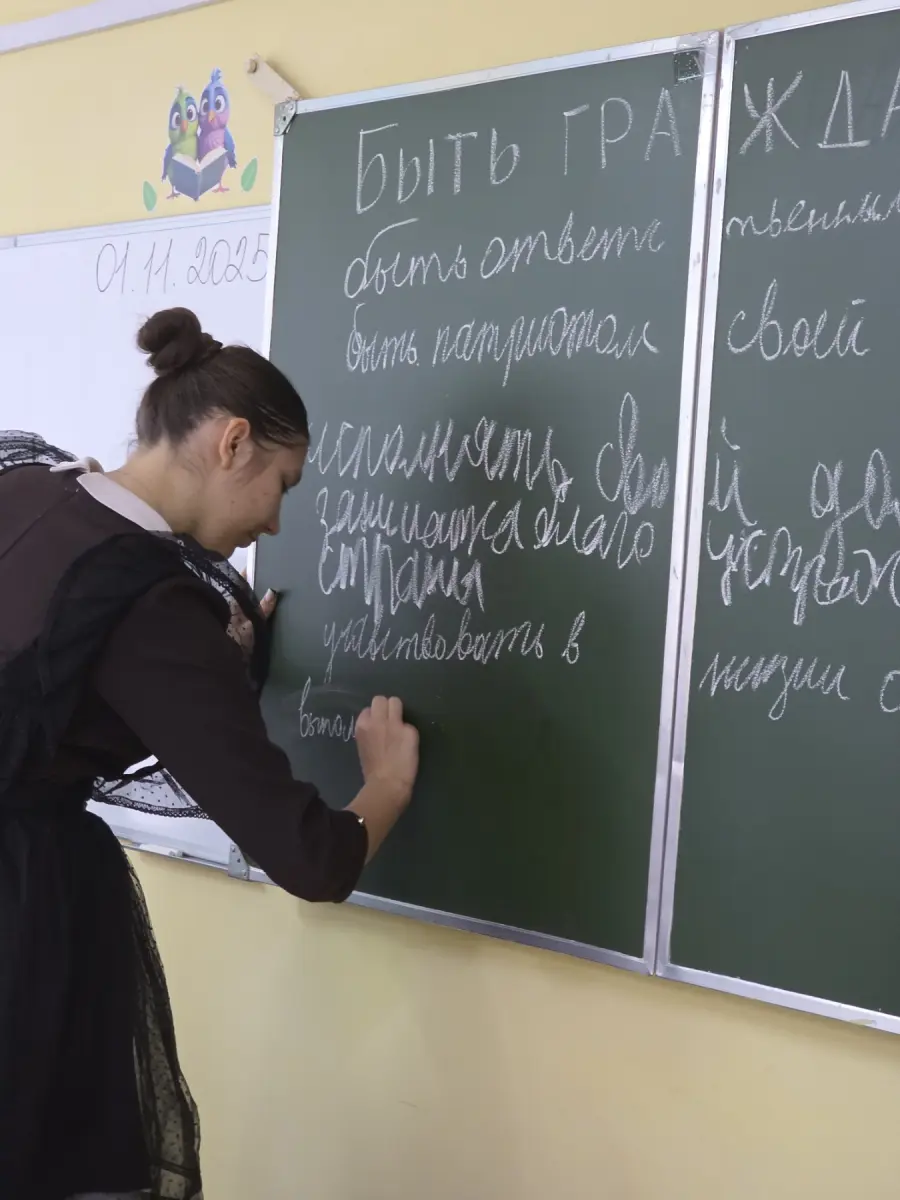 01.11.2025
БЫТЬ ГРАЖДА
быть ответственным
быть патриотом своей
исполнять свой
защищать благо
страны
участвовать в жизни с
выпол